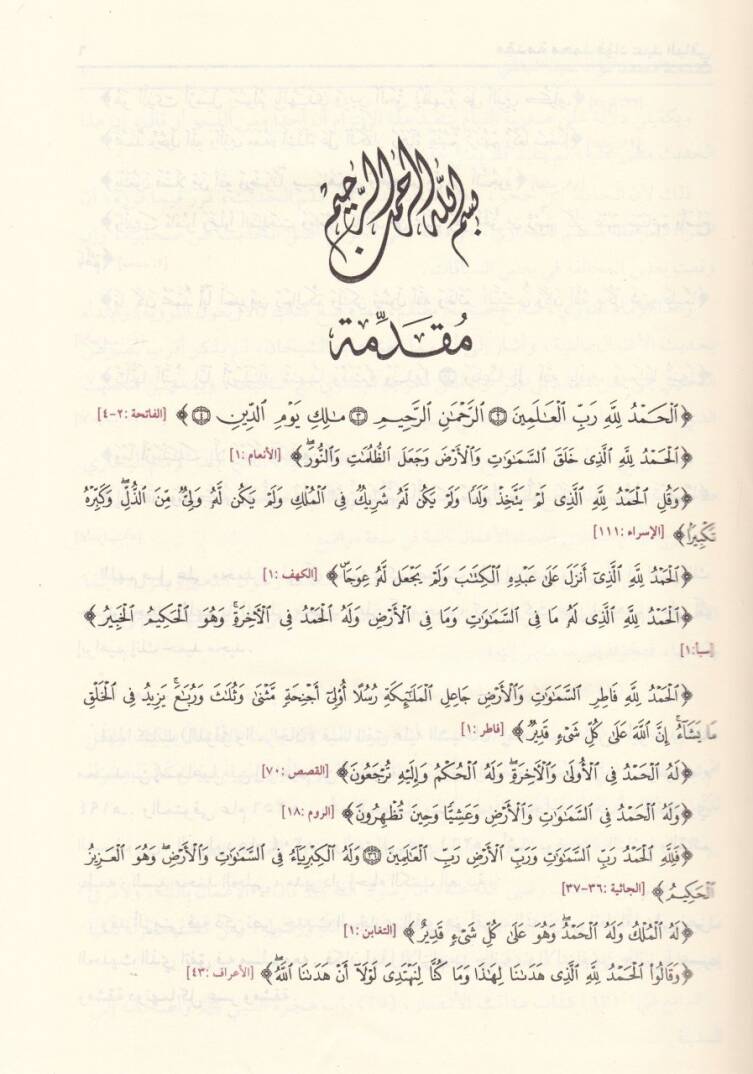 بسم الله الرحمن الرحيم
مُقَدِّمة
﴿ٱلۡحَمۡدُ لِلَّهِ رَبِّ ٱلۡعَٰلَمِينَ ۝٢ ٱلرَّحۡمَٰنِ ٱلرَّحِيمِ ۝٣ مَٰلِكِ يَوۡمِ ٱلدِّينِ ۝٤﴾ [الفاتحة :٢-٤]
﴿ٱلۡحَمۡدُ لِلَّهِ ٱلَّذِى خَلَقَ ٱلسَّمَٰوَٰتِ وَٱلۡأَرۡضَ وَجَعَلَ ٱلظُّلُمَٰتِ وَٱلنُّورَۖ﴾ [الأنعام :١]
﴿وَقُلِ ٱلۡحَمۡدُ لِلَّهِ ٱلَّذِى لَمۡ يَتَّخِذۡ وَلَدٗا وَلَمۡ يَكُن لَّهُۥ شَرِيكٞ فِى ٱلۡمُلۡكِ وَلَمۡ يَكُن لَّهُۥ وَلِىّٞ مِّنَ ٱلذُّلِّۖ وَكَبِّرۡهُ
تَكۡبِيرَۢا﴾ [الإسراء :١١١]
﴿ٱلۡحَمۡدُ لِلَّهِ ٱلَّذِىٓ أَنزَلَ عَلَىٰ عَبۡدِهِ ٱلۡكِتَٰبَ وَلَمۡ يَجۡعَل لَّهُۥ عِوَجَاۜ﴾ [الكهف :١]
﴿ٱلۡحَمۡدُ لِلَّهِ ٱلَّذِى لَهُۥ مَا فِى ٱلسَّمَٰوَٰتِ وَمَا فِى ٱلۡأَرۡضِ وَلَهُ ٱلۡحَمۡدُ فِى ٱلۡأٓخِرَةِۚ وَهُوَ ٱلۡحَكِيمُ ٱلۡخَبِيرُ﴾
[سبأ :١]
﴿ٱلۡحَمۡدُ لِلَّهِ فَاطِرِ ٱلسَّمَٰوَٰتِ وَٱلۡأَرۡضِ جَاعِلِ ٱلۡمَلَٰٓئِكَةِ رُسُلًا أُوْلِىٓ أَجۡنِحَةٖ مَّثۡنَىٰ وَثُلَٰثَ وَرُبَٰعَۚ يَزِيدُ فِى ٱلۡخَلۡقِ
مَا يَشَآءُۚ إِنَّ ٱللَّهَ عَلَىٰ كُلِّ شَىۡءٖ قَدِيرٞ﴾ [فاطر :١]
﴿لَهُ ٱلۡحَمۡدُ فِى ٱلۡأُولَىٰ وَٱلۡأٓخِرَةِۖ وَلَهُ ٱلۡحُكۡمُ وَإِلَيۡهِ تُرۡجَعُونَ﴾ [القصص :٧٠]
﴿وَلَهُ ٱلۡحَمۡدُ فِى ٱلسَّمَٰوَٰتِ وَٱلۡأَرۡضِ وَعَشِيّٗا وَحِينَ تُظۡهِرُونَ﴾ [الروم :١٨]
﴿فَلِلَّهِ ٱلۡحَمۡدُ رَبِّ ٱلسَّمَٰوَٰتِ وَرَبِّ ٱلۡأَرۡضِ رَبِّ ٱلۡعَٰلَمِينَ ۝٣٦ وَلَهُ ٱلۡكِبۡرِيَآءُ فِى ٱلسَّمَٰوَٰتِ وَٱلۡأَرۡضِۖ وَهُوَ ٱلۡعَزِيزُ
ٱلۡحَكِيمُ﴾ [الجاثية :٣٦-٣٧]
﴿لَهُ ٱلۡمُلۡكُ وَلَهُ ٱلۡحَمۡدُۖ وَهُوَ عَلَىٰ كُلِّ شَىۡءٖ قَدِيرٌ﴾ [التغابن :١]
﴿وَقَالُواْ ٱلۡحَمۡدُ لِلَّهِ ٱلَّذِى هَدَىٰنَا لِهَٰذَا وَمَا كُنَّا لِنَهۡتَدِىَ لَوۡلَآ أَنۡ هَدَىٰنَا ٱللَّهُۖ﴾ [الأعراف :٤٣]